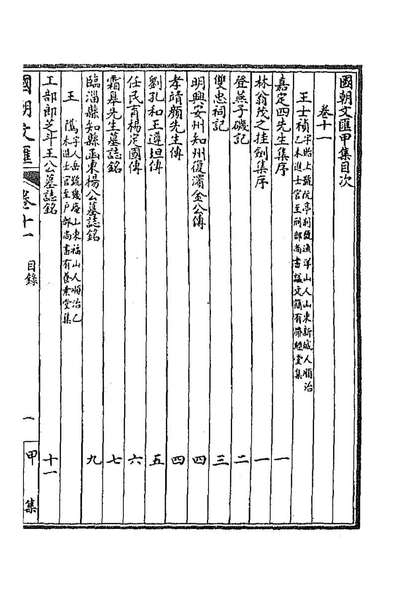 國朝文匯甲集目次
卷十一
王士禎字貽上號阮亭別號漁洋山人山東新城人順治乙未進士官至刑部尚書諡文簡有帶經堂集
嘉定四先生集序 一
林翁茂之挂劍集序 一
登燕子磯記 二
雙忠祠記 三
明興安州知州復濱金公傳 四
孝靖顏先生傳 四
劉孔和王遵坦傳 五
任民育楊定國傳 六
霜皋先生墓誌銘 七
臨淄縣知縣函東楊公墓誌銘 九
王隲字人岳號幾庵山東福山人順治乙未進士官至戶部尚書有養素堂集
工部郎芝斗王公墓誌銘 十一
國朝文匯 卷十一 目錄 一 甲集